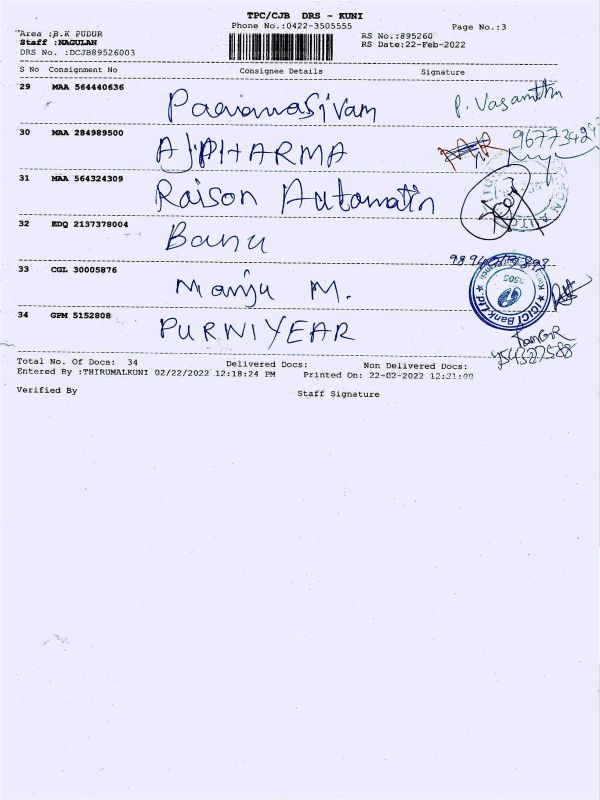 TPC/CJB DRS - KUNI
Phone No.:0422-3505555
Page No.:3
Area :B.K PUDUR
RS No.:895260
Staff :NAGULAN
RS Date:22-Feb-2022
DRS No. :DCJB89526003
S No Consignment No Consignee Details Signature
29 MAA 564440636 Paramasivam P. Vasantha
30 MAA 284989500 AJ PHARMA
31 MAA 564324309 Raison Automatin
32 KDQ 2137378004 Banu
33 CGL 30005876 Manju M. ICICI Bank Ltd
34 GPM 5152808 PURNIYEAR
Total No. Of Docs: 34 Delivered Docs: Non Delivered Docs:
Entered By :THIRUMALKUNI 02/22/2022 12:18:24 PM Printed On: 22-02-2022 12:21:00
Verified By Staff Signature